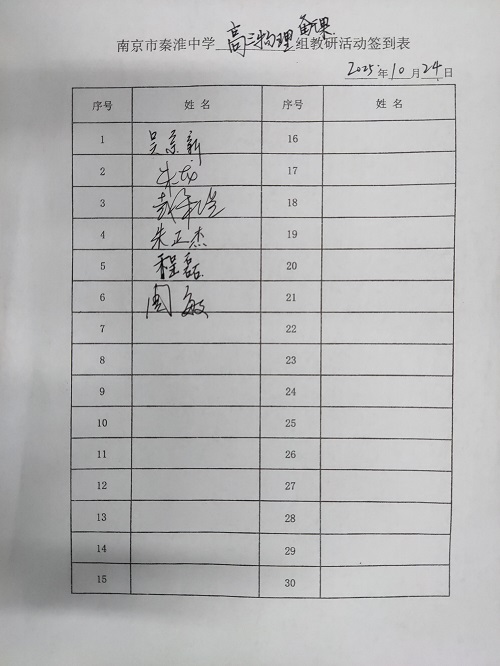 南京市秦淮中学 高三物理备课 组教研活动签到表
2025年10月24日
序号 姓名 序号 姓名
1 吴京新 16
2 朱成 17
3 18
4 朱正杰 19
5 程磊 20
6 周敏 21
7 22
8 23
9 24
10 25
11 26
12 27
13 28
14 29
15 30